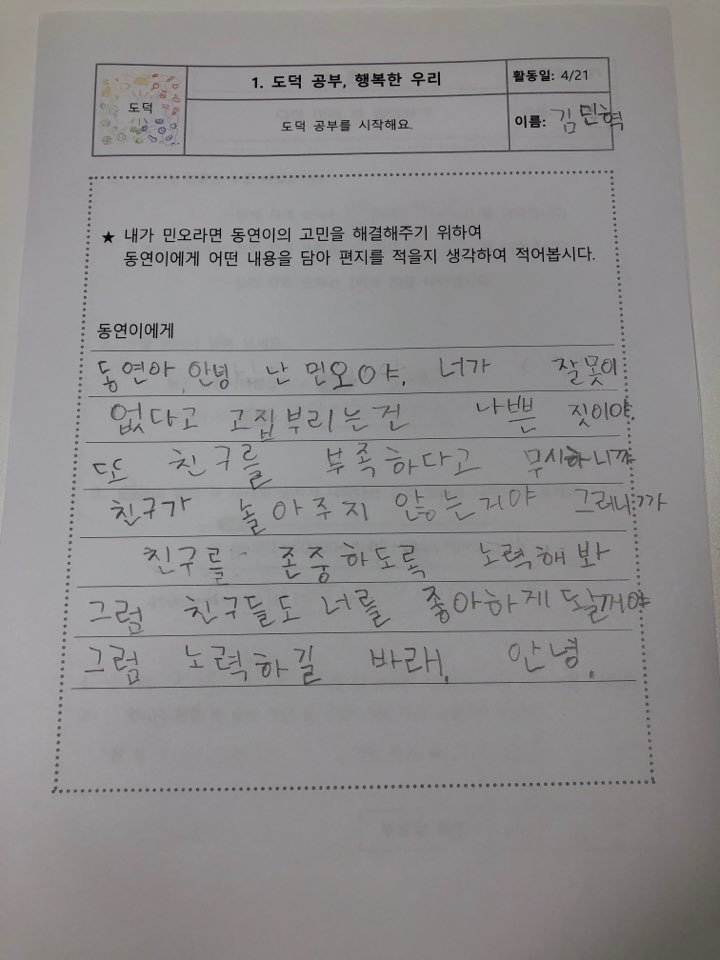 도덕
1. 도덕 공부, 행복한 우리
활동일: 4/21
도덕 공부를 시작해요.
이름: 김민혁
★ 내가 민오라면 동연이의 고민을 해결해주기 위하여
동연이에게 어떤 내용을 담아 편지를 적을지 생각하여 적어봅시다.
동연이에게
동연아, 안녕 난 민오야. 너가 잘못이
없다고 고집부리는건 나쁜 짓이야.
또 친구를 부족하다고 무시하니까
친구가 놀아주지 않는거야 그러니까
친구를 존중하도록 노력해봐
그럼 친구들도 너를 좋아하게 될꺼야
그럼 노력하길 바래. 안녕.